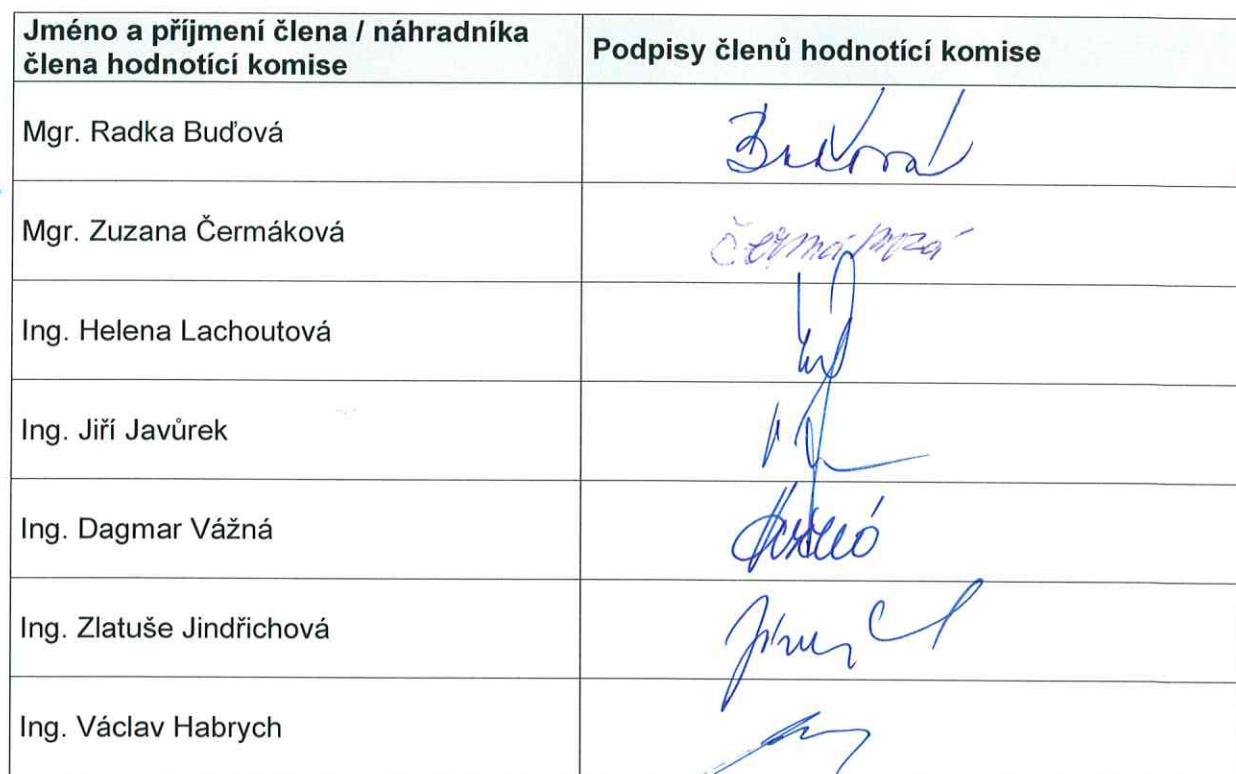 Jméno a příjmení člena / náhradníka
člena hodnotící komise
Podpisy členů hodnotící komise
Mgr. Radka Buďová
Mgr. Zuzana Čermáková
Čermáková
Ing. Helena Lachoutová
Ing. Jiří Javůrek
Ing. Dagmar Vážná
Ing. Zlatuše Jindřichová
Ing. Václav Habrych